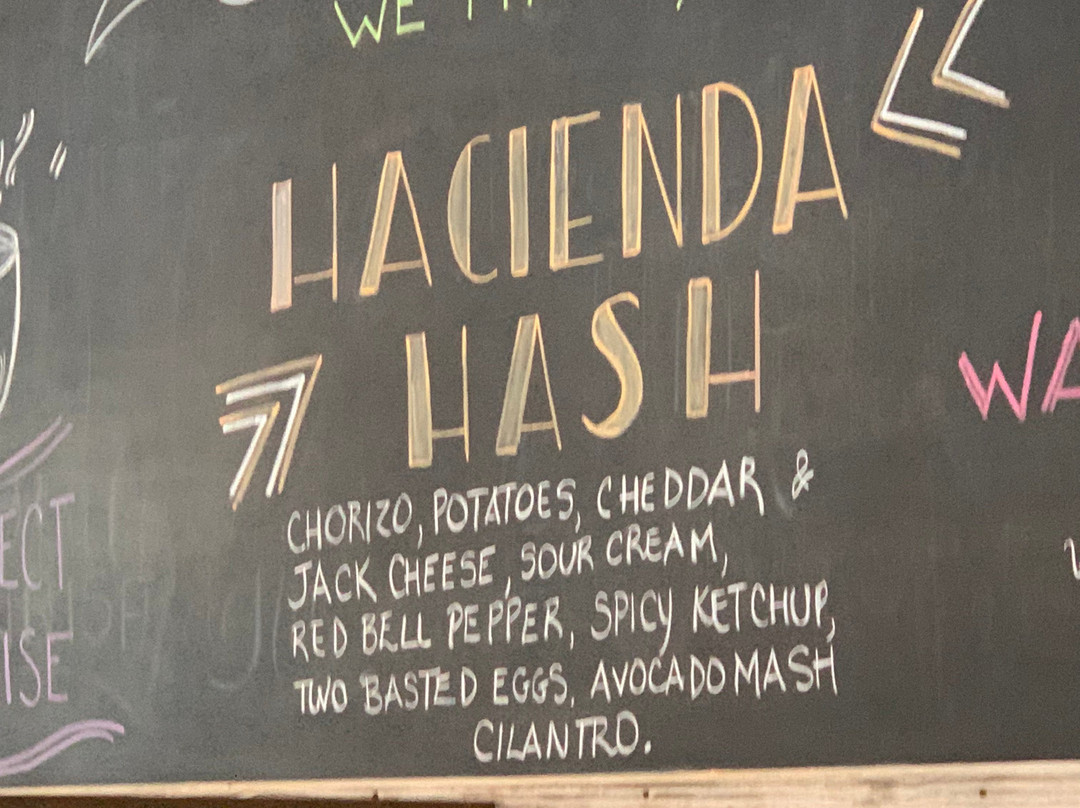 WE
HACIENDA
HASH
CHORIZO, POTATOES, CHEDDAR &
JACK CHEESE, SOUR CREAM,
RED BELL PEPPER, SPICY KETCHUP,
TWO BASTED EGGS, AVOCADO MASH
CILANTRO.
ECT
ISE
WA